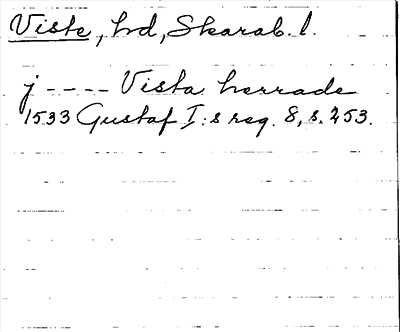 Viste, hd, Skarab. l.
j ---- Vista herrade
1533 Gustaf I:s reg. 8, s. 253.